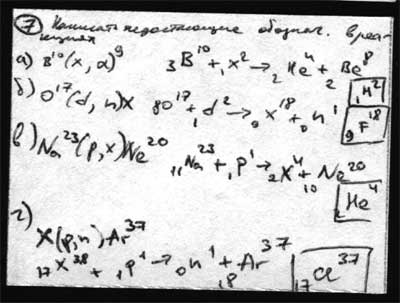 ⑦ Написать недостающие обознач. в реа-
кциях
а) B¹⁰(x, α)⁹ ₃B¹⁰ + ₁x² → ₂He⁴ + ₂Be⁸ ₁H²
б) O¹⁷(d, n)X 8O¹⁷ + ₁d² → ₉x¹⁸ + ₀n¹ ₉F¹⁸
в) Na²³(p, x)Ne²⁰ ₁₁Na²³ + ₁p¹ → ₂X⁴ + ₁₀Ne²⁰
₂He⁴
г)
X(p, n)Ar³⁷
₁₇X³⁸ + ₁p¹ → ₀n¹ + ₁₈Ar³⁷ ₁₇Cl³⁷